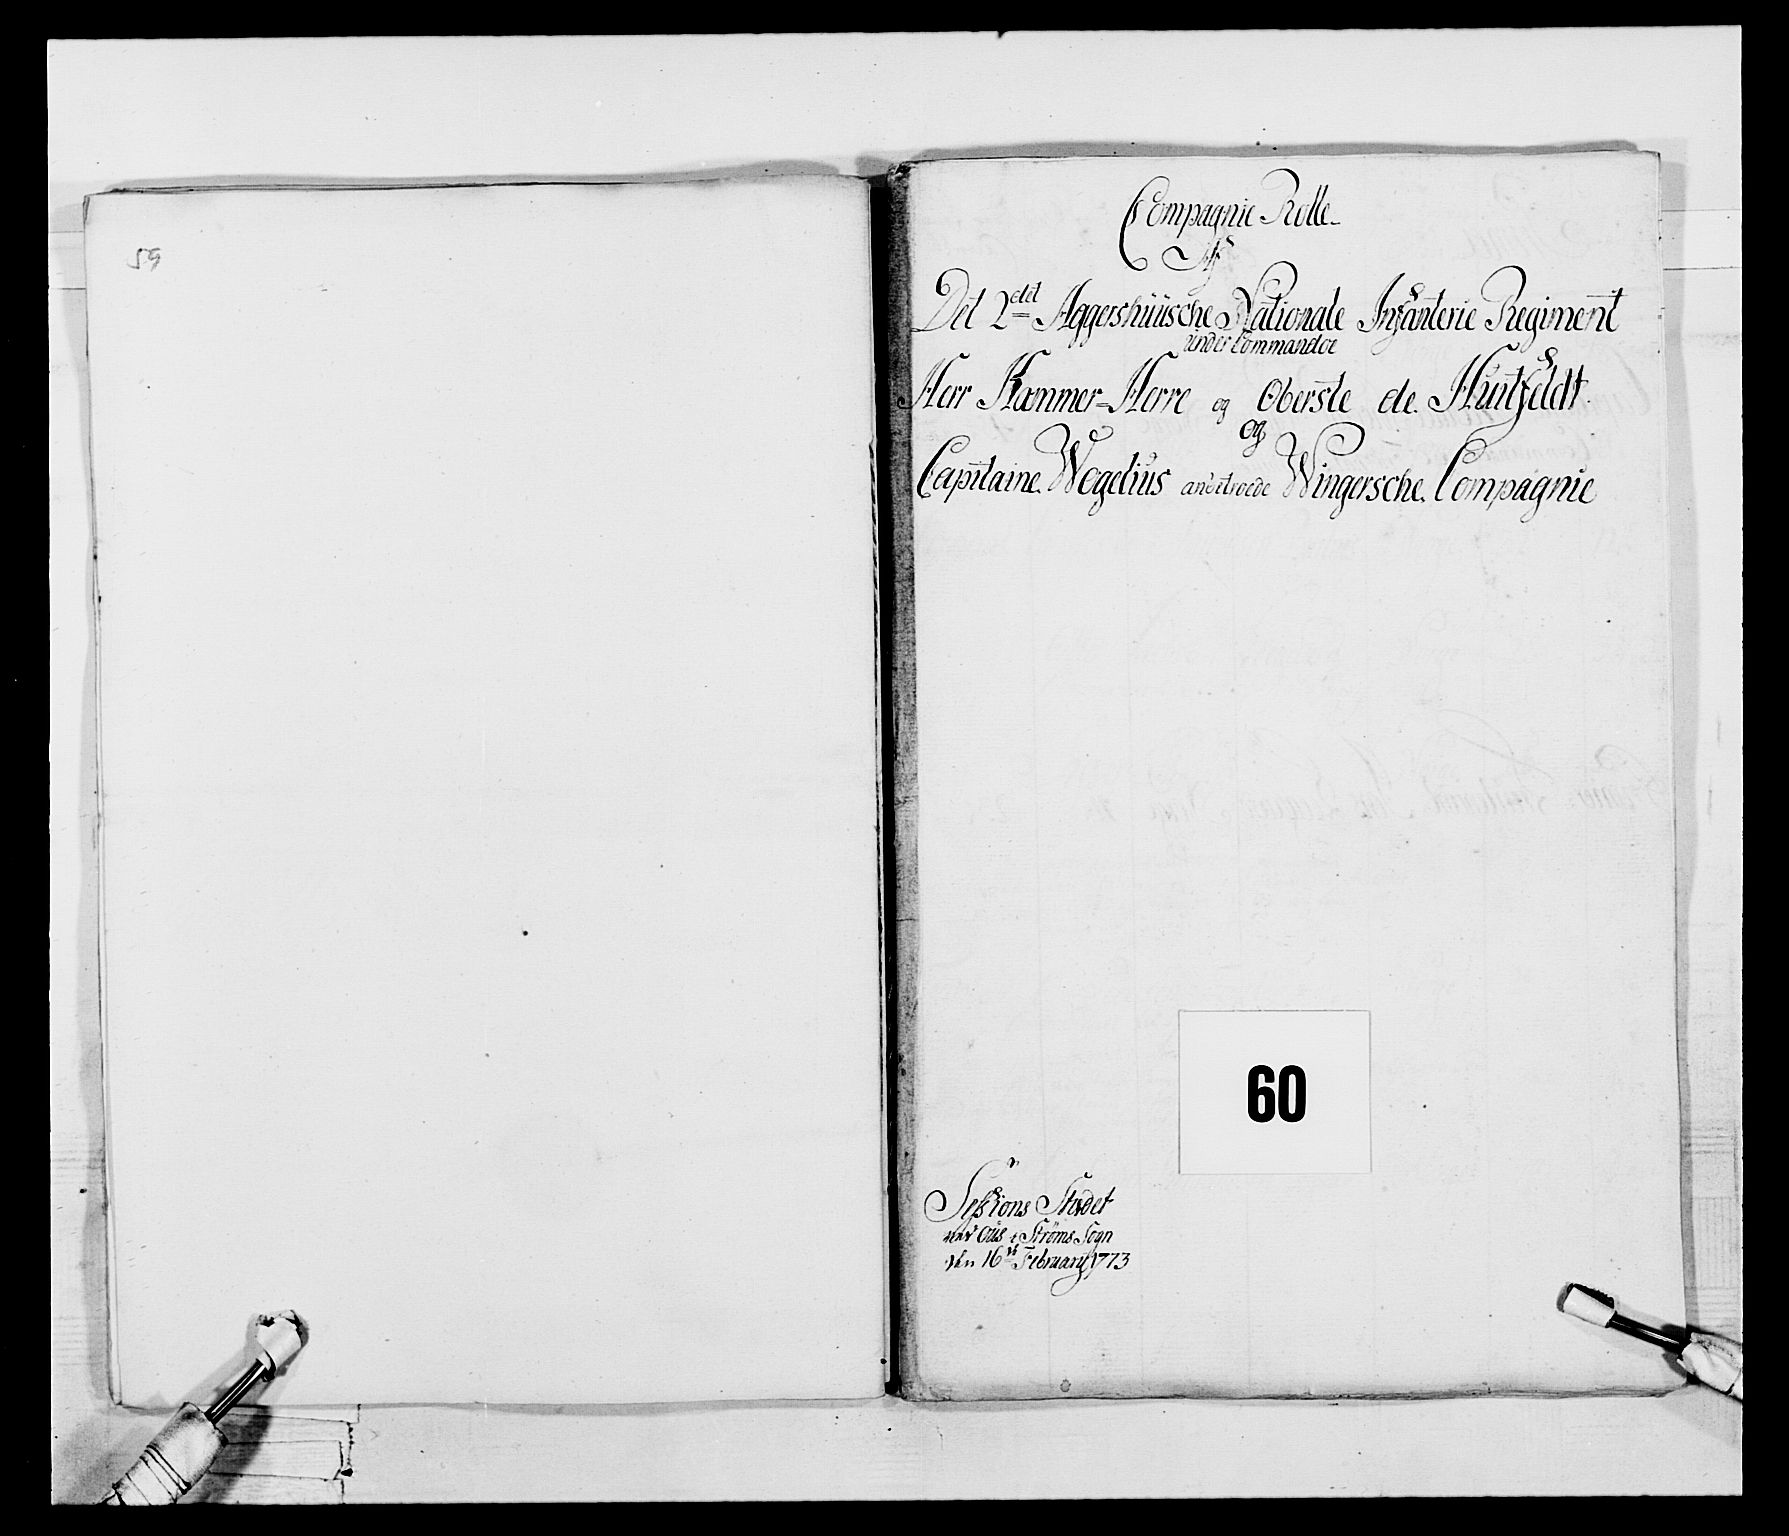 59
Compagnie Rolle
Af
Det 2det Aggershuusche Nationale Infanterie Regiment
under Commandoe
Herr Kammer-Herre og Oberste de Huitfeldt
og
Capitaine Wegelius anbetroede Wingersche Compagnie
60
Sessions Stædet
ved Ous i Strøms Sogn
den 16de February 1773